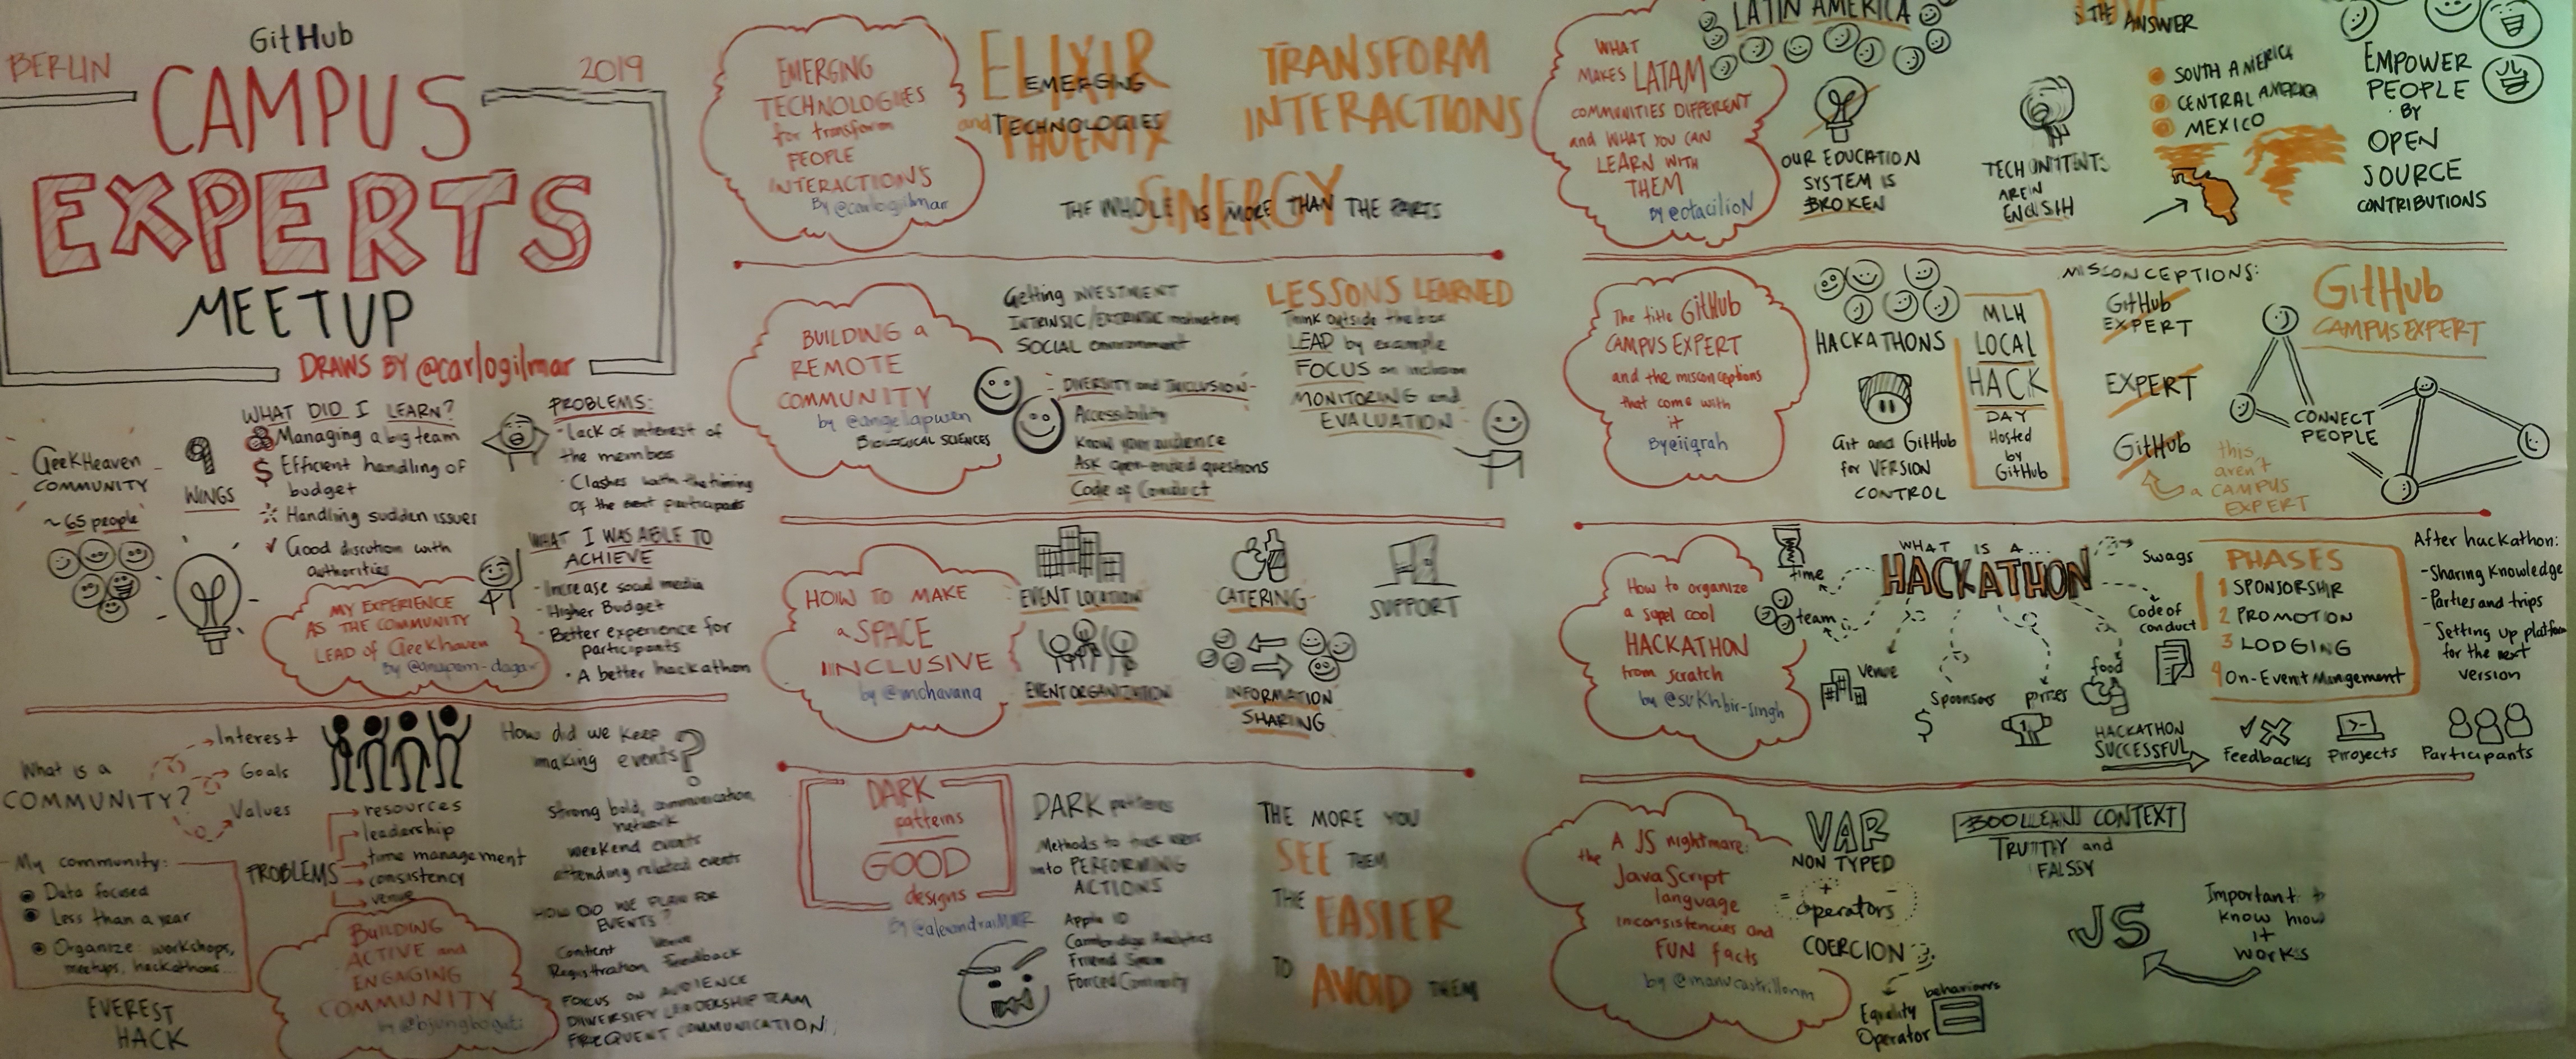 GitHub
BERLIN
2019
CAMPUS
EXPERTS
MEETUP
DRAWS BY @carlogilmar
GeekHeaven
COMMUNITY
~65 people
9
WINGS
WHAT DID I LEARN?
Managing a big team
$ Efficient handling of
budget
Handling sudden issues
✓ Good discution with
authorities
PROBLEMS:
- Lack of interest of
the members
- Clashes with the timing
of the participants
WHAT I WAS ABLE TO
ACHIEVE
- Increase social media
- Higher Budget
- Better experience for
participants
• A better hackathon
MY EXPERIENCE
AS THE COMMUNITY
LEAD of GeekHaven
By @anupam-dagar
What is a
COMMUNITY?
Interest
Goals
Values
My community:
Data focused
Less than a year
Organize: workshops,
meetups, hackathons...
EVEREST
HACK
PROBLEMS
resources
leadership
time management
consistency
venue
BUILDING
ACTIVE and
ENGAGING
COMMUNITY
by
How did we keep
making events?
Strong bold, communication
network
weekend events
attending related events
HOW DID WE PLAN FOR
EVENTS?
Content Venue
Registration Feedback
FOCUS ON AUDIENCE
DIWERSIFY LEADERSHIP TEAM
FREQUENT COMMUNICATION
EMERGING
TECHNOLOGIES
for transform
PEOPLE
INTERACTIONS
By @carlogilmar
ELIXIR
EMERGING
and TECHNOLOGIES
PHOENIX
TRANSFORM
INTERACTIONS
SINERGY
THE WHOLE IS MORE THAN THE PARTS
BUILDING a
REMOTE
COMMUNITY
by @angelapwen
BIOLOGICAL SCIENCES
Getting INVESTMENT
INTRINSIC/EXTRINSIC motivation
SOCIAL environment
DIVERSITY and INCLUSION
Accessibility
Know your audience
Ask open-ended questions
Code of Conduct
LESSONS LEARNED
Think outside the box
LEAD by example
FOCUS on inclusion
MONITORING and
EVALUATION
HOW TO MAKE
a SPACE
INCLUSIVE
by @mchavana
EVENT LOCATION
CATERING
SUPPORT
EVENT ORGANIZATION
INFORMATION
SHARING
DARK
patterns
GOOD
designs
By
DARK patterns
Methods to trick users
into PERFORMING
ACTIONS
Apple ID
Cambridge Analytics
Friend Spam
Forced Continuity
THE MORE YOU
SEE THEM
THE EASIER
TO AVOID THEM
WHAT
MAKES LATAM
COMMUNITIES DIFFERENT
and WHAT YOU CAN
LEARN WITH
THEM
By @otacilioN
LATIN AMERICA
OUR EDUCATION
SYSTEM IS
BROKEN
TECH
ARE IN
ENGLISH
IS THE ANSWER
SOUTH AMERICA
CENTRAL AMERICA
MEXICO
EMPOWER
PEOPLE
BY
OPEN
SOURCE
CONTRIBUTIONS
The title GitHub
CAMPUS EXPERT
and the misconceptions
that come with
it
HACKATHONS
Git and GitHub
for VERSION
CONTROL
MLH
LOCAL
HACK
DAY
Hosted
by
GitHub
MISCONCEPTIONS:
GitHub
EXPERT
EXPERT
GitHub
this
aren't
a CAMPUS
EXPERT
GitHub
CAMPUS EXPERT
CONNECT
PEOPLE
How to organize
a supel cool
HACKATHON
from scratch
by @sukhbir-singh
WHAT IS A...
HACKATHON
time
team
Venue
Sponsors
$
prizes
food
Code of
conduct
Swags
PHASES
1 SPONSORSHIP
2 PROMOTION
3 LODGING
4 On-Event Mangement
After hackathon:
- Sharing Knowledge
- Parties and trips
- Setting up platform
for the next
version
HACKATHON
SUCCESSFUL
Feedbacks
Projects
Participants
A JS nightmare:
the JavaScript
language
inconsistencies and
FUN facts
by @manucastrillonm
VAR
NON TYPED
+ - =
operators
COERCION
Equality
Operator
behaviors
BOOLEAN CONTEXT
TRUTHY and
FALSSY
JS
Important to
know how
it
works